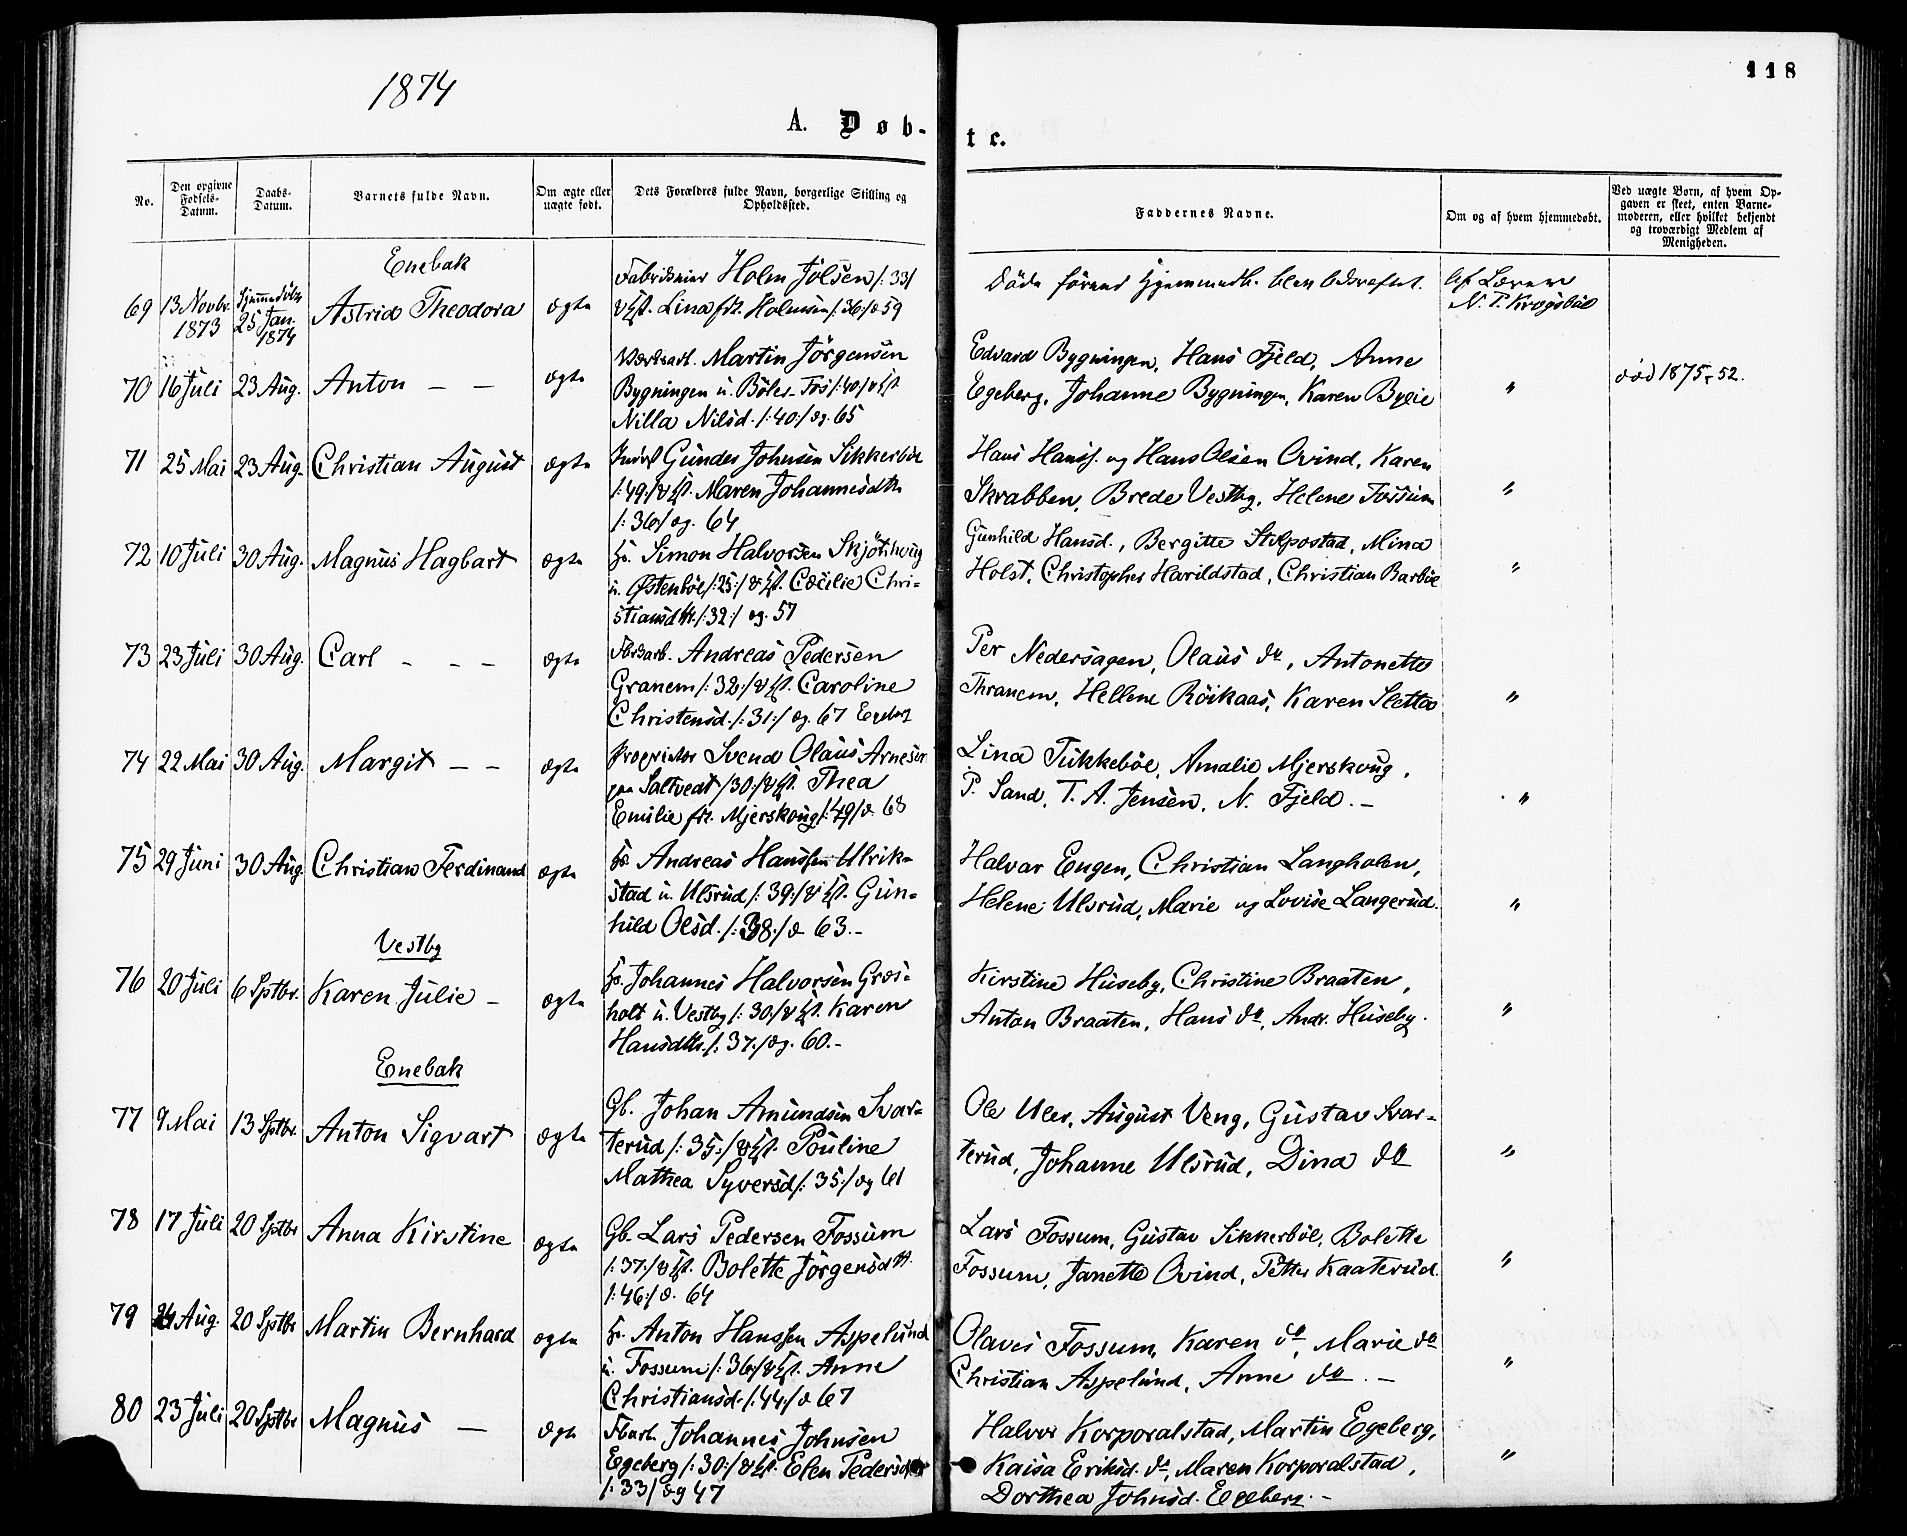 118
1874
A. Døb-
te.
No.
Den opgivne Fødsels-Datum.
Daabs-Datum.
Barnets fulde Navn.
Om ægte eller uægte født.
Dets Forældres fulde Navn, borgerlige Stilling og Opholdssted.
Faddernes Navne.
Om og af hvem hjemmedøbt.
Ved uægte Børn, af hvem Opgaven er skeet, enten Barnemoderen, eller hvilket bekjendt og troværdigt Medlem af Menigheden.
Enebak
69 13 Novbr. 1873 25 Jan. 1874 Astrid Theodora ægte
Holm Jölsen /: 33/
Lina f. Holmsen /:36:/ 59
Döde förend Hjemmed. blev bekræftet.
af Lærer
N. P. Krogsböl
70 16 Juli 23 Aug. Anton — — ægte
Martin Jörgensen
Bygningen u. Böler-Fos /:40:/
Nilla Nilsd. /:40:/ og. 65
Edvard Bygningen, Hans Fjeld, Anne
Egeberg, Johanne Bygningen, Karen
"
död 1875, 52.
71 25 Mai 23 Aug. Christian August ægte
Gunder Johnsen Sikkerböl
/:49:/ Maren Johannesdtr.
/:36:/ og. 64
Hans Hanss. og Hans Olsen Ovind, Karen
Skrabben, Brede Vestby, Helene Fossum
"
72 10 Juli 30 Aug. Magnus Hagbart ægte
Simon Halvorsen
u. Østenböl /:25:/ Cæcilie Chri-
stiansdtr. /:32:/ og. 57
Gunhild Hansd., Bergitte Mina
Holst, Christopher Harildstad, Christian Barböl
"
73 23 Juli 30 Aug. Carl - - - ægte
Andreas Pedersen
Granem /:32:/ Caroline
Christensd. /:31:/ og. 67 Egeberg
Per Nedersagen, Olaus do, Antonette
Thranem, Hellene Röikaas, Karen Sletta
"
74 22 Mai 30 Aug. Margit — — ægte
Proprietær Svend Olaus Arnesen
paa Saltvedt /30:/ Thea
Emilie f. Mjerskoug /:49/ 68
Lina Tukkeböl, Amalie Mjerskoug,
P. Sand, T. A. Jensen, N. Fjeld. —
"
75 29 Juni 30 Aug. Christian Ferdinand ægte
Andreas Hanssen Ulrik-
stad u. Ulsrud /:39:/ Gun-
hild Olsd. /:38:/ 63.-
Halvar Engen, Christian Langholen,
Helene Ulsrud, Marie og Lovise Langerud.
"
Vestby
76 20 Juli 6 Sptbr. Karen Julie - ægte
Johannes Halvorsen Græs-
holt u. Vestby /:30:/ Karen
Hansdtr. /:37:/ og. 60.-
Kirstine Huseby, Christine Braaten,
Anton Braaten, Hans do, Andr. Huseby.
"
Enebak
77 9 Mai 13 Sptbr. Anton Sigvart ægte
Gb. Johan Amundsen Svar-
terud /:35:/ Pouline
Mathea Syversd /:35:/ og 61
Ole Uler, August Veng, Gustav Svar-
terud, Johanne Ulsrud, Dina do
"
78 17 Juli 20 Sptbr Anna Kirstine ægte
Gb. Lars Pedersen Fossum
/:37:/ Bolette Jörgensdtr.
/:46:/ 64
Lars Fossum, Gustav Sikkerböl, Bolette
Fossum, Janette Ovind, Petter Kaaterud.
"
79 24 Aug. 20 Sptbr Martin Bernhard ægte
Anton Hanssen Aspelund
u. Fossum /:36:/ Anne
Christiansd. /:44:/ 67
Olaves Fossum, Karen do, Marie do
Christian Aspelund, Anne do. —
"
80 23 Juli 20 Sptbr Magnus — ægte
Johannes Johnsen
Egeberg /:30:/ Elen Pedersd
/:33/ og 47
Halvor Korporalstad, Martin Egeberg,
Kaisa Eriksd. do, Maren Korporalstad,
Dorthea Johnsd. Egeberg. -
"